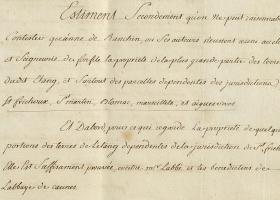 Estiment. Secondement qu'on ne peut raisonnable
Contester que anne de Ranchin, ou ses auteurs n'eussent acuni au cle
et Seigneurie de la propriété de la plus grande partie des terres
dudit Etang, et surtout des parcelles dependentes des jurisdictions
St frichoux, St martin, Blomac, marseillete, et aiguesvives
Et Dabord pour ce qui regarde la propriété de quelques
portions des terres de Letang dependentes de la jurisdiction de St frich
Elle est suffisament prouvée, contre mr. Labbé, et les benedictins de
Labbaye de caunes